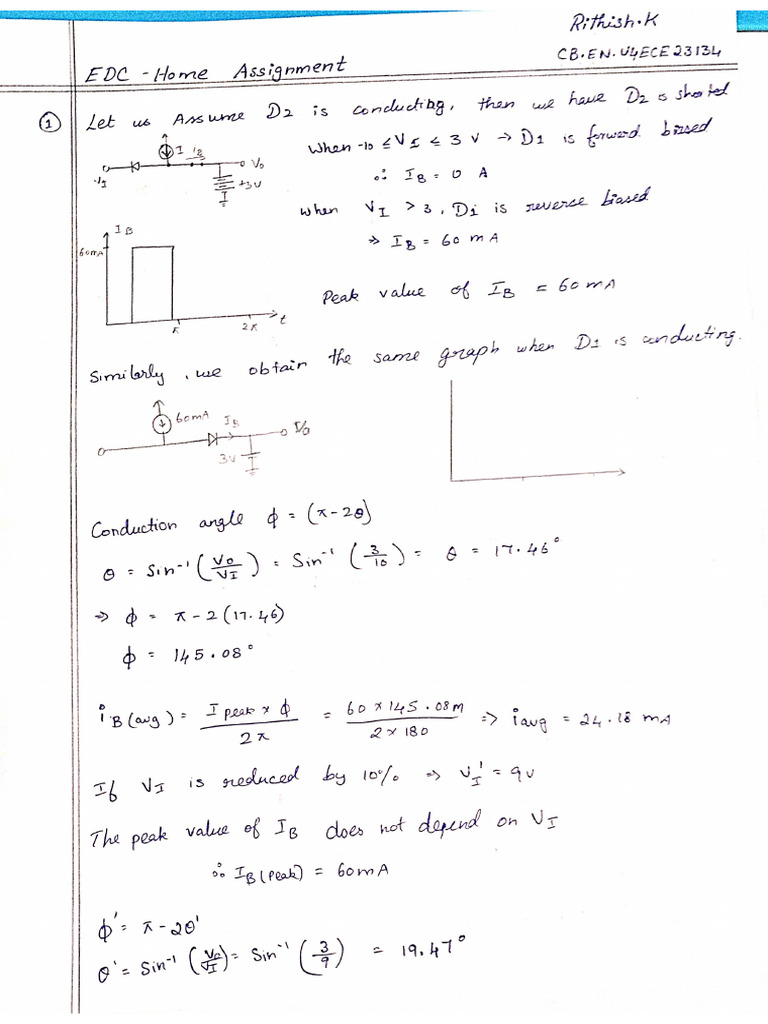 Rithish.K
CB.EN.U4ECE23134
EDC - Home Assignment
① Let us Assume D2 is conducting, then we have D2 is shorted
When -10 ≤ VI ≤ 3 V → D1 is forward biased
∴ IB = 0 A
when VI > 3, D1 is reverse biased
⇒ IB = 60 mA
I iB Vo
-VI +3V
IB
60mA
π 2π t
Peak value of IB = 60mA
Similarly, we obtain the same graph when D1 is conducting.
60mA IB Vo
3V
Conduction angle ϕ = (π-2θ)
θ = Sin⁻¹ (Vo/VI) = Sin⁻¹ (3/10) = θ = 17.46°
⇒ ϕ = π - 2(17.46)
ϕ = 145.08°
iB(avg) = I peak × ϕ / 2π = 60 × 145.08m / 2 × 180 ⇒ iavg = 24.18 mA
If VI is reduced by 10% ⇒ VI' = 9v
The peak value of IB does not depend on VI
∴ IB(Peak) = 60mA
ϕ' = π - 2θ'
θ' = Sin⁻¹ (Vo/VI) = Sin⁻¹ (3/9) = 19.47°